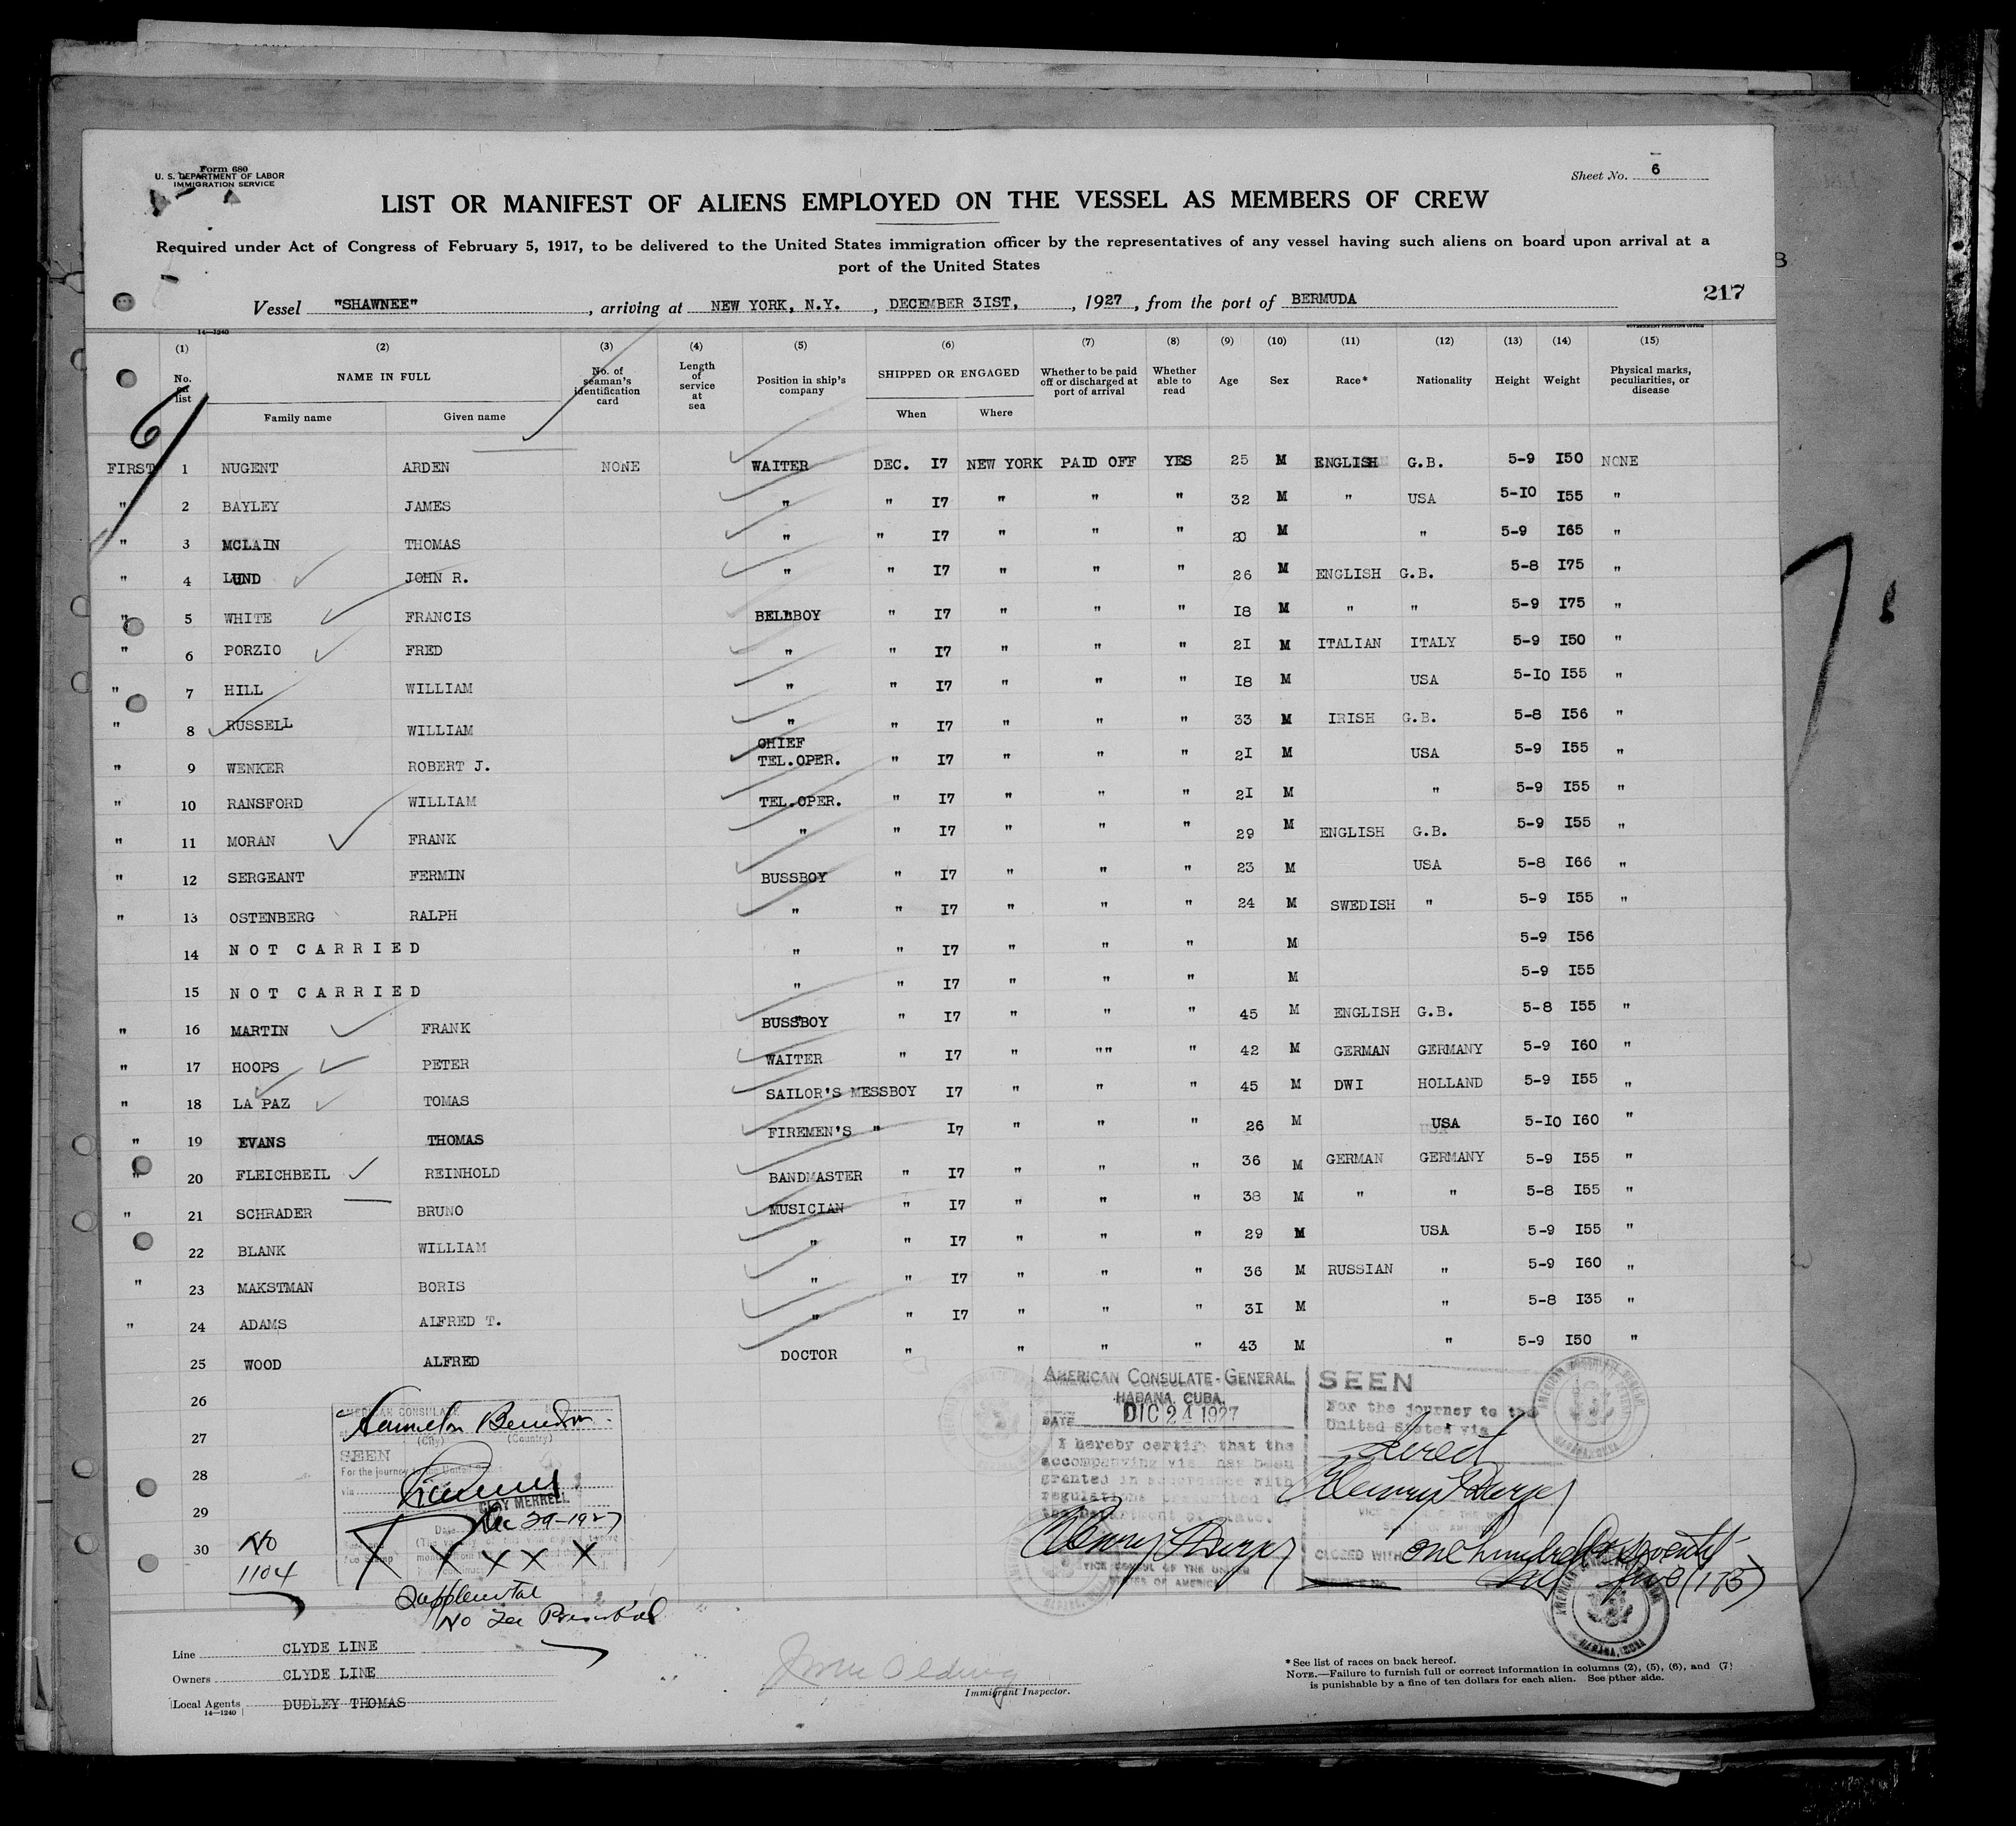 Form 680
U. S. DEPARTMENT OF LABOR
IMMIGRATION SERVICE
Sheet No. 6
LIST OR MANIFEST OF ALIENS EMPLOYED ON THE VESSEL AS MEMBERS OF CREW
Required under Act of Congress of February 5, 1917, to be delivered to the United States immigration officer by the representatives of any vessel having such aliens on board upon arrival at a
port of the United States
217
Vessel "SHAWNEE", arriving at NEW YORK, N.Y., DECEMBER 31ST, 1927, from the port of BERMUDA
14—1240
GOVERNMENT PRINTING OFFICE
(1) (2) (3) (4) (5) (6) (7) (8) (9) (10) (11) (12) (13) (14) (15)
No. on list NAME IN FULL No. of seaman's identification card Length of service at sea Position in ship's company SHIPPED OR ENGAGED Whether to be paid off or discharged at port of arrival Whether able to read Age Sex Race* Nationality Height Weight Physical marks, peculiarities, or disease
Family name Given name When Where
6
FIRST 1 NUGENT ARDEN NONE WAITER DEC. 17 NEW YORK PAID OFF YES 25 M ENGLISH G.B. 5-9 150 NONE
" 2 BAYLEY JAMES " " 17 " " " 32 M " USA 5-10 155 "
" 3 MCLAIN THOMAS " " 17 " " " 20 M " 5-9 165 "
" 4 LUND JOHN R. " " 17 " " " 26 M ENGLISH G.B. 5-8 175 "
" 5 WHITE FRANCIS BELLBOY " 17 " " " 18 M " " 5-9 175 "
" 6 PORZIO FRED " " 17 " " " 21 M ITALIAN ITALY 5-9 150 "
" 7 HILL WILLIAM " " 17 " " " 18 M USA 5-10 155 "
" 8 RUSSELL WILLIAM " " 17 " " " 33 M IRISH G.B. 5-8 156 "
" 9 WENKER ROBERT J. CHIEF TEL.OPER. " 17 " " " 21 M USA 5-9 155 "
" 10 RANSFORD WILLIAM TEL.OPER. " 17 " " " 21 M " 5-9 155 "
" 11 MORAN FRANK " " 17 " " " 29 M ENGLISH G.B. 5-9 155 "
" 12 SERGEANT FERMIN BUSSBOY " 17 " " " 23 M USA 5-8 166 "
" 13 OSTENBERG RALPH " " 17 " " " 24 M SWEDISH " 5-9 155 "
14 NOT CARRIED " " 17 " " " M 5-9 156
15 NOT CARRIED " " 17 " " " M 5-9 155
" 16 MARTIN FRANK BUSSBOY " 17 " " " 45 M ENGLISH G.B. 5-8 155 "
" 17 HOOPS PETER WAITER " 17 " "" " 42 M GERMAN GERMANY 5-9 160 "
" 18 LA PAZ TOMAS SAILOR'S MESSBOY 17 " " " 45 M DWI HOLLAND 5-9 155 "
" 19 EVANS THOMAS FIREMEN'S " 17 " " " 26 M USA 5-10 160 "
" 20 FLEICHBEIL REINHOLD BANDMASTER " 17 " " " 36 M GERMAN GERMANY 5-9 155 "
" 21 SCHRADER BRUNO MUSICIAN " 17 " " " 38 M " " 5-8 155 "
22 BLANK WILLIAM " " 17 " " " 29 M USA 5-9 155 "
" 23 MAKSTMAN BORIS " " 17 " " " 36 M RUSSIAN " 5-9 160 "
" 24 ADAMS ALFRED T. " " 17 " " " 31 M " 5-8 135 "
25 WOOD ALFRED DOCTOR " " " " 43 M " 5-9 150 "
26
27
28
29
30
AMERICAN CONSULATE
Hamilton Bermuda
(City) (Country)
SEEN
For the journey to the United States
via
CLAY MERRELL
Date Dec 29-1927
X X X X X
No
1104
Supplemental
No Fee Prescribed
AMERICAN CONSULATE-GENERAL
HABANA, CUBA.
DATE DIC 24 1927
I hereby certify that the
accompanying visa has been
granted in accordance with
regulations prescribed
the Department of State.
VICE CONSUL OF THE UNITED
STATES OF AMERICA
SEEN
For the journey to the
United States via
direct
CLOSED WITH one hundred seventy-
five (175)
Line CLYDE LINE
Owners CLYDE LINE
Local Agents DUDLEY THOMAS
14—1240
Immigrant Inspector.
* See list of races on back hereof.
NOTE.—Failure to furnish full or correct information in columns (2), (5), (6), and (7)
is punishable by a fine of ten dollars for each alien. See other side.